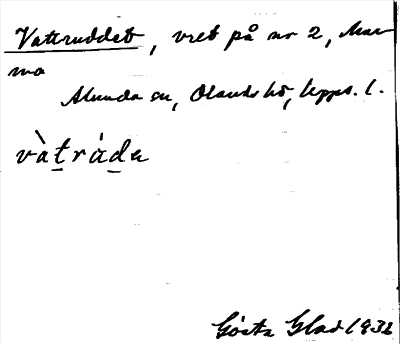 Vattruddet, vret på nr 2, Mar-
ma
Alunda sn, Olands hd, Uppl. l.
vàt̲ràd̲a
Gösta Glad 1932